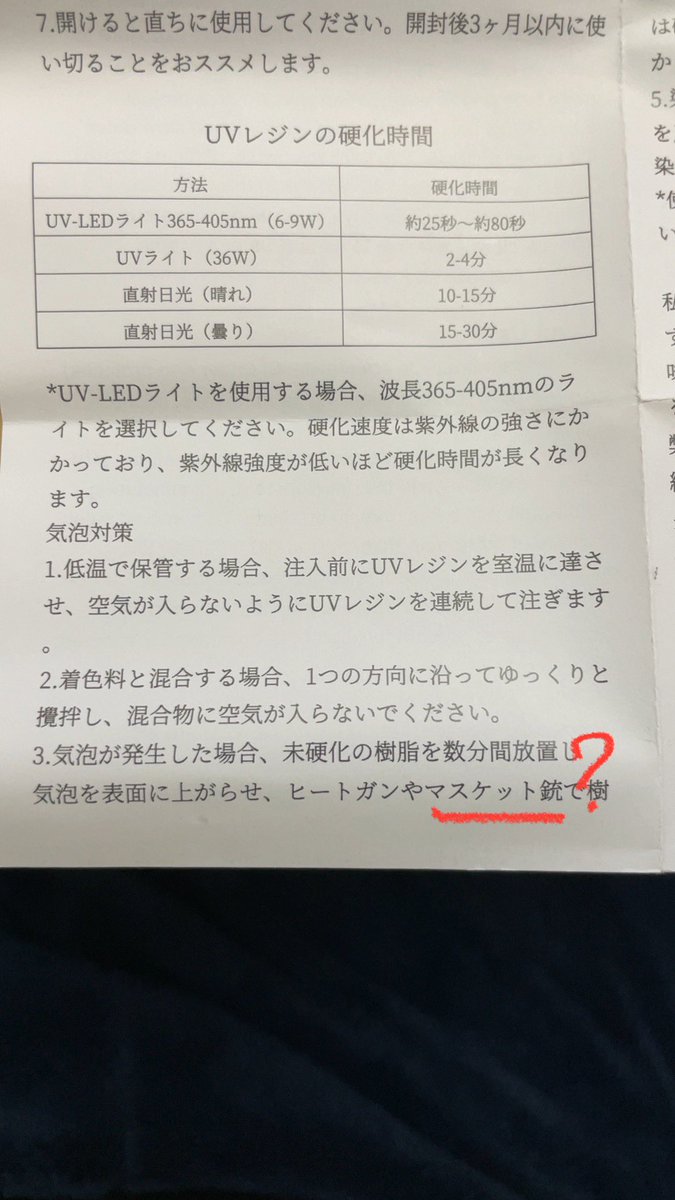 7.開けると直ちに使用してください。開封後3ヶ月以内に使
い切ることをおススメします。
UVレジンの硬化時間
方法 硬化時間
UV-LEDライト365-405nm（6-9W） 約25秒～約80秒
UVライト（36W） 2-4分
直射日光（晴れ） 10-15分
直射日光（曇り） 15-30分
*UV-LEDライトを使用する場合、波長365-405nmのラ
イトを選択してください。硬化速度は紫外線の強さにか
かっており、紫外線強度が低いほど硬化時間が長くなり
ます。
気泡対策
1.低温で保管する場合、注入前にUVレジンを室温に達さ
せ、空気が入らないようにUVレジンを連続して注ぎます
。
2.着色料と混合する場合、1つの方向に沿ってゆっくりと
攪拌し、混合物に空気が入らないでください。
3.気泡が発生した場合、未硬化の樹脂を数分間放置し
気泡を表面に上がらせ、ヒートガンやマスケット銃で樹
?
は
か
5.
を
染
*
い